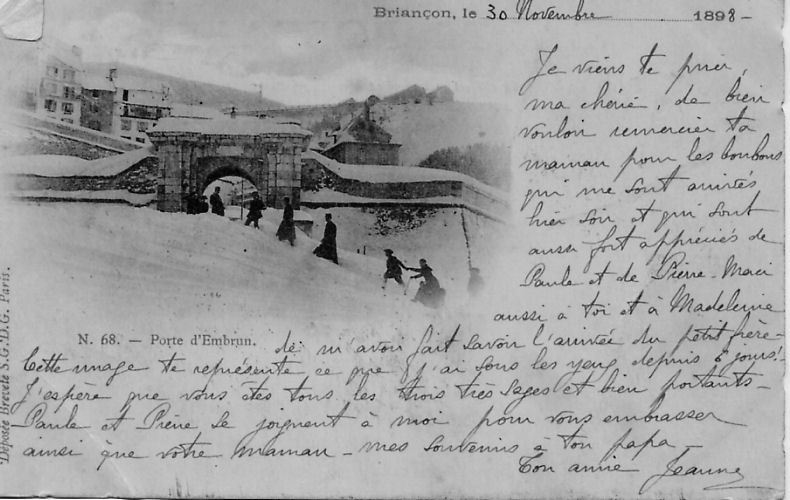 Briançon, le 30 Novembre 1898 -
Je viens te prier,
ma chérie, de bien
vouloir remercier ta
maman pour les bonbons
qui me sont arrivés
hier soir et qui sont
aussi fort appréciés de
Paule et de Pierre - Merci
aussi à toi et à Madeleine
de m'avoir fait savoir l'arrivée du petit frère -
Cette image te représente ce que j'ai sous les yeux depuis 6 jours!
J'espère que vous êtes tous les trois très sages et bien portants -
Paule et Pierre se joignent à moi pour vous embrasser
ainsi que votre maman - mes souvenirs a ton papa -
Ton amie Jeanne
N. 68. — Porte d'Embrun.
Déposée Breveté S.G.D.G. Paris.